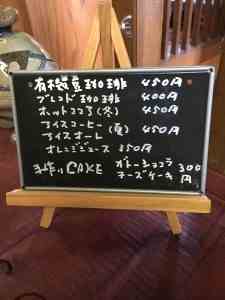 有機豆珈琲 450円
ブレンド珈琲 400円
ホットココア(冬) 450円
アイスコーヒー(夏) 450円
アイスオーレ
オレンジジュース 350円
手作りCAKE ガトーショコラ 300円
チーズケーキ